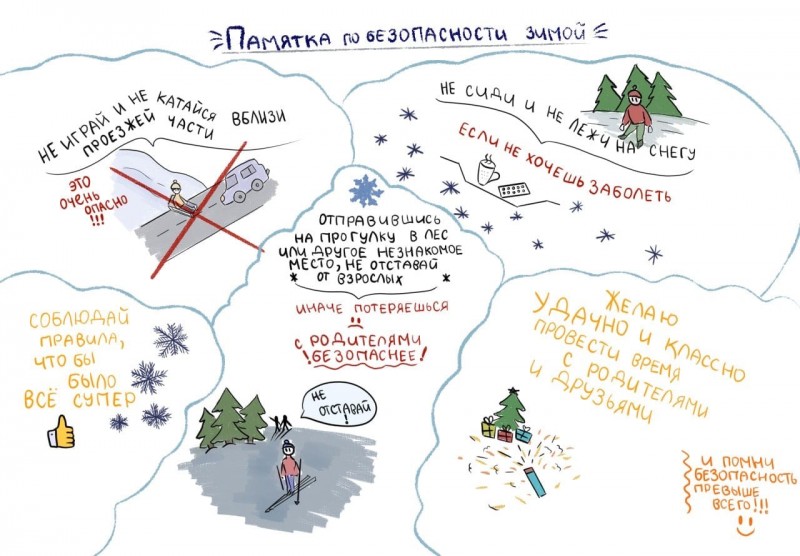 Памятка по безопасности зимой
НЕ ИГРАЙ И НЕ КАТАЙСЯ ВБЛИЗИ
ПРОЕЗЖЕЙ ЧАСТИ
ЭТО
ОЧЕНЬ
ОПАСНО
!!!
НЕ СИДИ И НЕ ЛЕЖИ НА СНЕГУ
ЕСЛИ НЕ ХОЧЕШЬ ЗАБОЛЕТЬ
ОТПРАВИВШИСЬ
НА ПРОГУЛКУ В ЛЕС
ИЛИ ДРУГОЕ НЕЗНАКОМОЕ
МЕСТО, НЕ ОТСТАВАЙ
* ОТ ВЗРОСЛЫХ *
ИНАЧЕ ПОТЕРЯЕШЬСЯ
С РОДИТЕЛЯМИ
!БЕЗОПАСНЕЕ!
НЕ
ОТСТАВАЙ
!
СОБЛЮДАЙ
ПРАВИЛА,
ЧТО БЫ
БЫЛО
ВСЁ СУПЕР
ЖЕЛАЮ
УДАЧНО И КЛАССНО
ПРОВЕСТИ ВРЕМЯ
С РОДИТЕЛЯМИ
И ДРУЗЬЯМИ
И ПОМНИ
БЕЗОПАСНОСТЬ
ПРЕВЫШЕ
ВСЕГО!!!